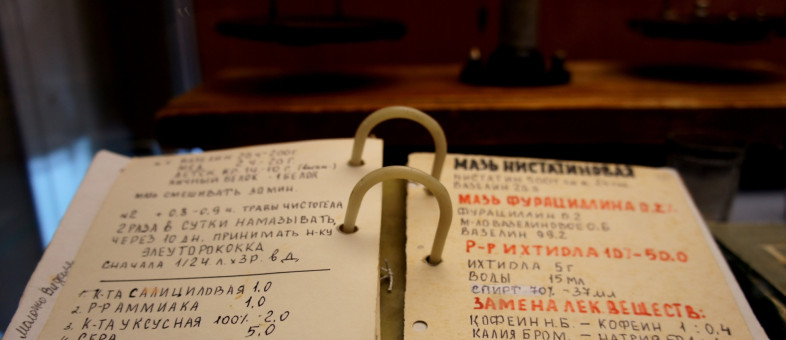 ВАЗЕЛИН
МЁД
ЯИЧНЫЙ БЕЛОК - 1 БЕЛОК
МАЗЬ СМЕШИВАТЬ 30 МИН.
N2 = 0.8-0.9 Ч. ТРАВЫ ЧИСТОТЕЛА
2 РАЗА В СУТКИ НАМАЗЫВАТЬ,
ЧЕРЕЗ 10 ДН. ПРИНИМАТЬ Н-КУ
ЭЛЕУТОРОКОККА
СНАЧАЛА 1/2 Ч.Л. × 3 Р. В Д,
1. К-ТА САЛИЦИЛОВАЯ 1.0
2. Р-Р АММИАКА 1.0
3. К-ТА УКСУСНАЯ 100% -2.0
4 СЕРА 5.0
Молоко Видаля
МАЗЬ НИСТАТИНОВАЯ
НИСТАТИН
ВАЗЕЛИН
МАЗЬ ФУРАЦИЛЛИНА 0.2%.
ФУРАЦИЛЛИН 0.2
М-ЛО ВАЗЕЛИНОВОГО 0.6
ВАЗЕЛИН 99.2
Р-Р. ИХТИОЛА 10%-50.0
ИХТИОЛА 5 Г
ВОДЫ 15 МЛ
СПИРТ 70% - 37 МЛ
ЗАМЕНА ЛЕК. ВЕЩЕСТВ:
КОФЕИН Н.Б. – КОФЕИН 1 : 0.4
КАЛИЯ БРОМ. – НАТРИЯ